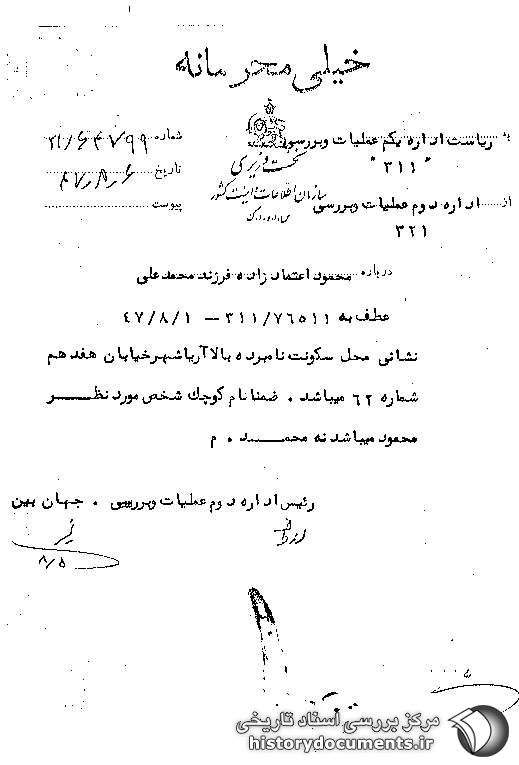 خیلی محرمانه
به ریاست اداره یکم عملیات وبررسی
"۳۱۱"
نخست وزیری
سازمان اطلاعات وامنیت کشور
س.ا.و.ا.ک
شماره
تاریخ ۴۷/۸/۶
پیوست
از اداره دوم عملیات وبررسی
۳۲۱
درباره محمود اعتماد زاده فرزند محمدعلی
عطف به ۳۱۱/۷۶۵۱۱ – ۴۷/۸/۱
نشانی محل سکونت نامبرده بالا آریا شهر خیابان هفدهم
شماره ۶۲ میباشد . ضمنا نام کوچک شخص مورد نظر
محمود میباشد نه محمد . م
رئیس اداره دوم عملیات وبررسی . جهان بین
۸/۵
مرکز بررسی اسناد تاریخی
historydocuments.ir